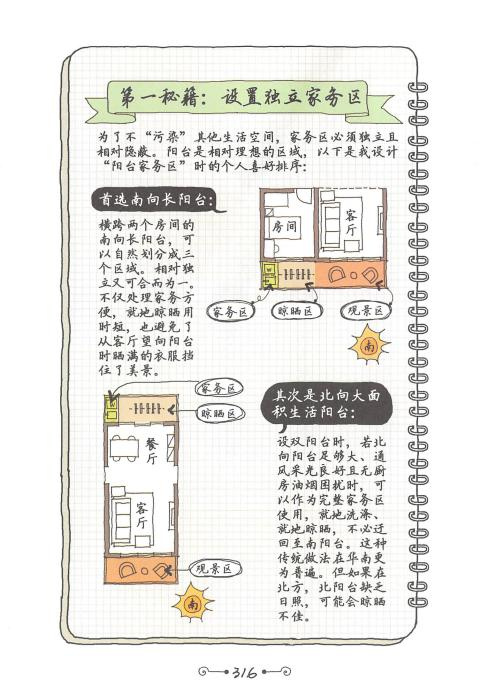 第一秘籍：设置独立家务区
为了不“污染”其他生活空间，家务区必须独立且
相对隐蔽。阳台是相对理想的区域，以下是我设计
“阳台家务区”时的个人喜好排序：
首选南向长阳台：
横跨两个房间的
南向长阳台，可
以自然划分成三
个区域。相对独
立又可合而为一。
不仅处理家务方
便，就地晾晒用
时短，也避免了
从客厅望向阳台
时晒满的衣服挡
住了美景。
房间
客厅
家务区
晾晒区
观景区
南
家务区
晾晒区
餐厅
客厅
观景区
南
其次是北向大面
积生活阳台：
设双阳台时，若北
向阳台足够大、通
风采光良好且无厨
房油烟困扰时，可
以作为完整家务区
使用，就地洗涤、
就地晾晒，不必迂
回至南阳台。这种
传统做法在华南更
为普遍。但如果在
北方，北阳台缺乏
日照，可能会晾晒
不佳。
316